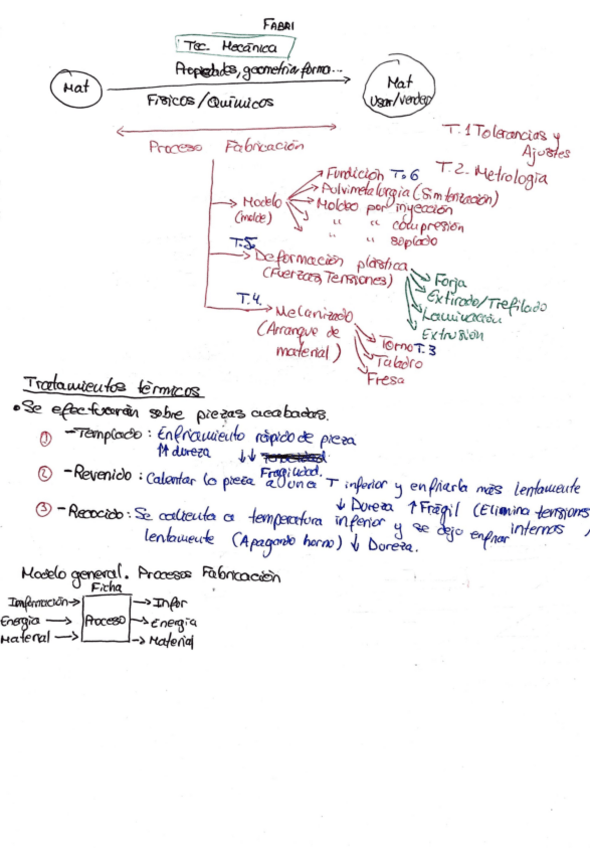 FABRI
Tec. Mecánica
Propiedades, geometría forma...
Mat
Mat
Usar/Vender
Físicos/Químicos
Proceso Fabricación
T.1 Tolerancias y
Ajustes
T.2. Metrología
Fundición T.6
Pulvimetalurgia (Sinterización)
Modelo
(molde)
Moldeo por inyección
" " compresión
" " soplado
T.5.
Deformación plástica
(Fuerzas, Tensiones)
Forja
Extirado/Trefilado
Laminación
Extrusión
T.4.
Mecanizado
(Arranque de
material)
Torno T.3
Taladro
Fresa
Tratamientos térmicos
• Se efectuarán sobre piezas acabadas.
① - Templado: Enfriamiento rápido de pieza
↑↑ dureza ↓↓ Fragilidad.
② - Revenido: Calentar la pieza a una T inferior y enfriarla más lentamente
↓ Dureza ↑ Frágil (Elimina tensiones
internas,
③ - Recocido: Se calienta a temperatura inferior y se deja enfriar
lentamente (Apagando horno) ↓ Dureza.
Modelo general. Procesos Fabricación
Ficha
Información → → Infor
Energía → Proceso → Energía
Material → → Material